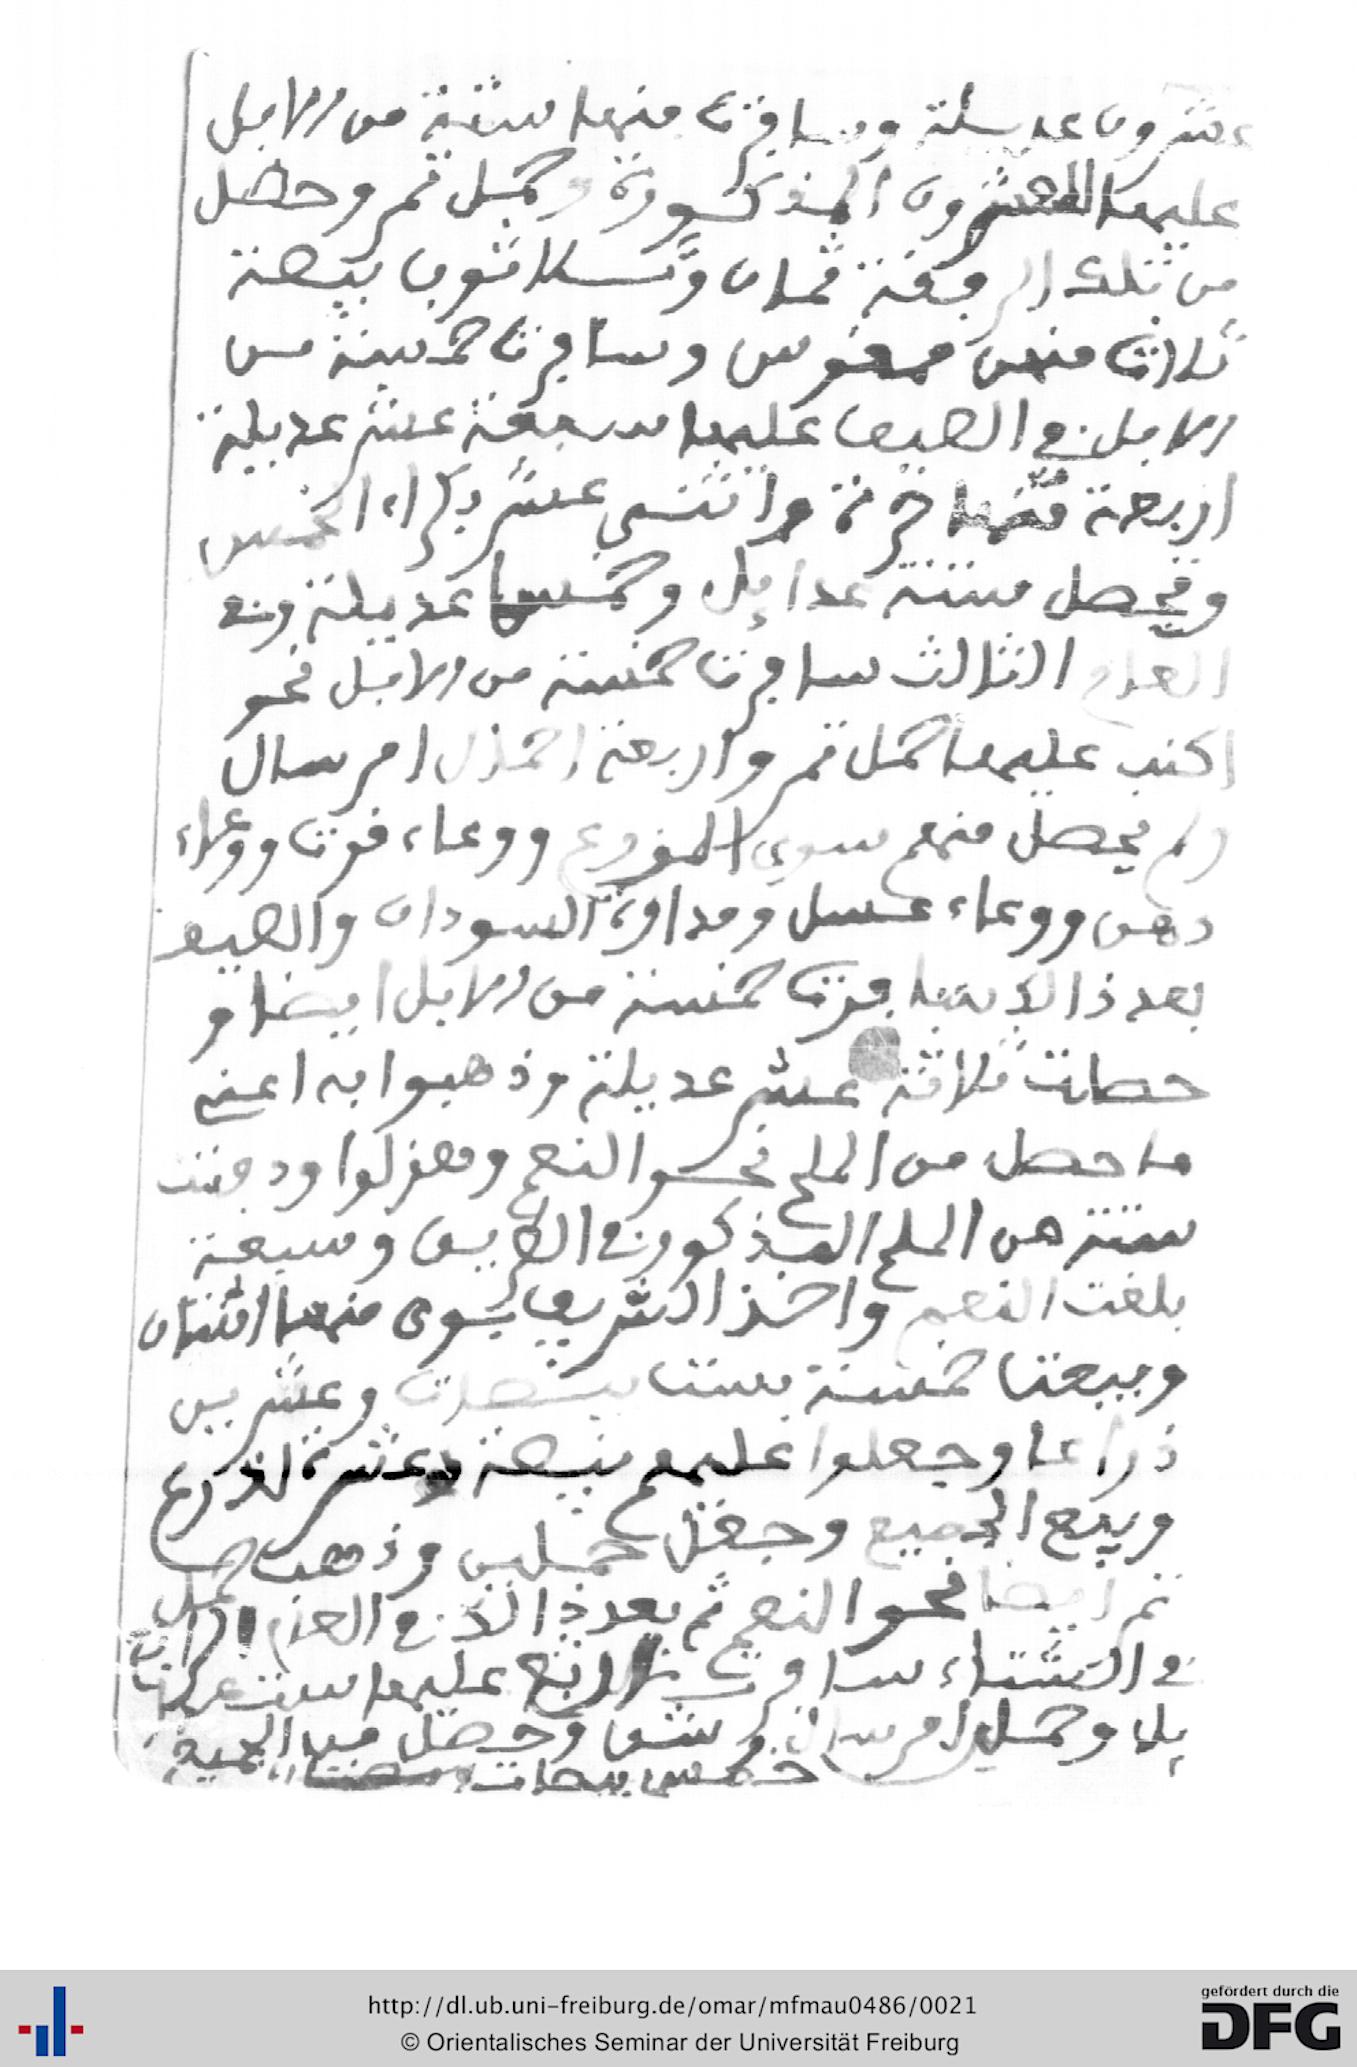 عشرون عديلة وسافرت منها ستة من الابل
عليها العشرون المذكورة وحمل تمر وحصل
من تلك الرفقة ثمان وثلاثون بيصة
ثلاث منهن وسافرت خمسة من
الابل في الصيف عليها سبعة عشر عديلة
اربعة منها خزنة واثنى عشر بكراء الخمس
وتحصل ستة عدايل وخمسا عديلة وفي
العام الثالث سافرت خمسة من الابل نحو
اكنب عليها حمل تمر واربعة احمال امرسال
ولم يحصل منهم سوى المزروع ووعاء فوت ووعاء
دهن ووعاء عسل ومداواة السودان والصيف
بعد ذالك سافرت خمسة من الابل ايضا و
حصلت ثلاثة عشر عديلة وذهبوا به اعني
ما حصل من الملح نحو النعم وهزلوا ودفنت
ستة من الملح المذكور في الطريق وسبعة
بلغت النعم واخذ الشريف سوى منها اثنان
وبيعتا خمسة بست بيصات وعشرين
ذراعا وجعلوا عليهم بيصة وعشرة اذرع
وبيع الجميع وجعل حملين وذهب حمل
تمر ايضا نحو النعم ثم بعد ذالك في العام الرابع
في الشتاء سافرت اربع عليها ست عدا
يل وحملي امرسال وشق وحصل من الجميع
خمس بيصات
http://dl.ub.uni-freiburg.de/omar/mfmau0486/0021
© Orientalisches Seminar der Universität Freiburg
gefördert durch die
DFG